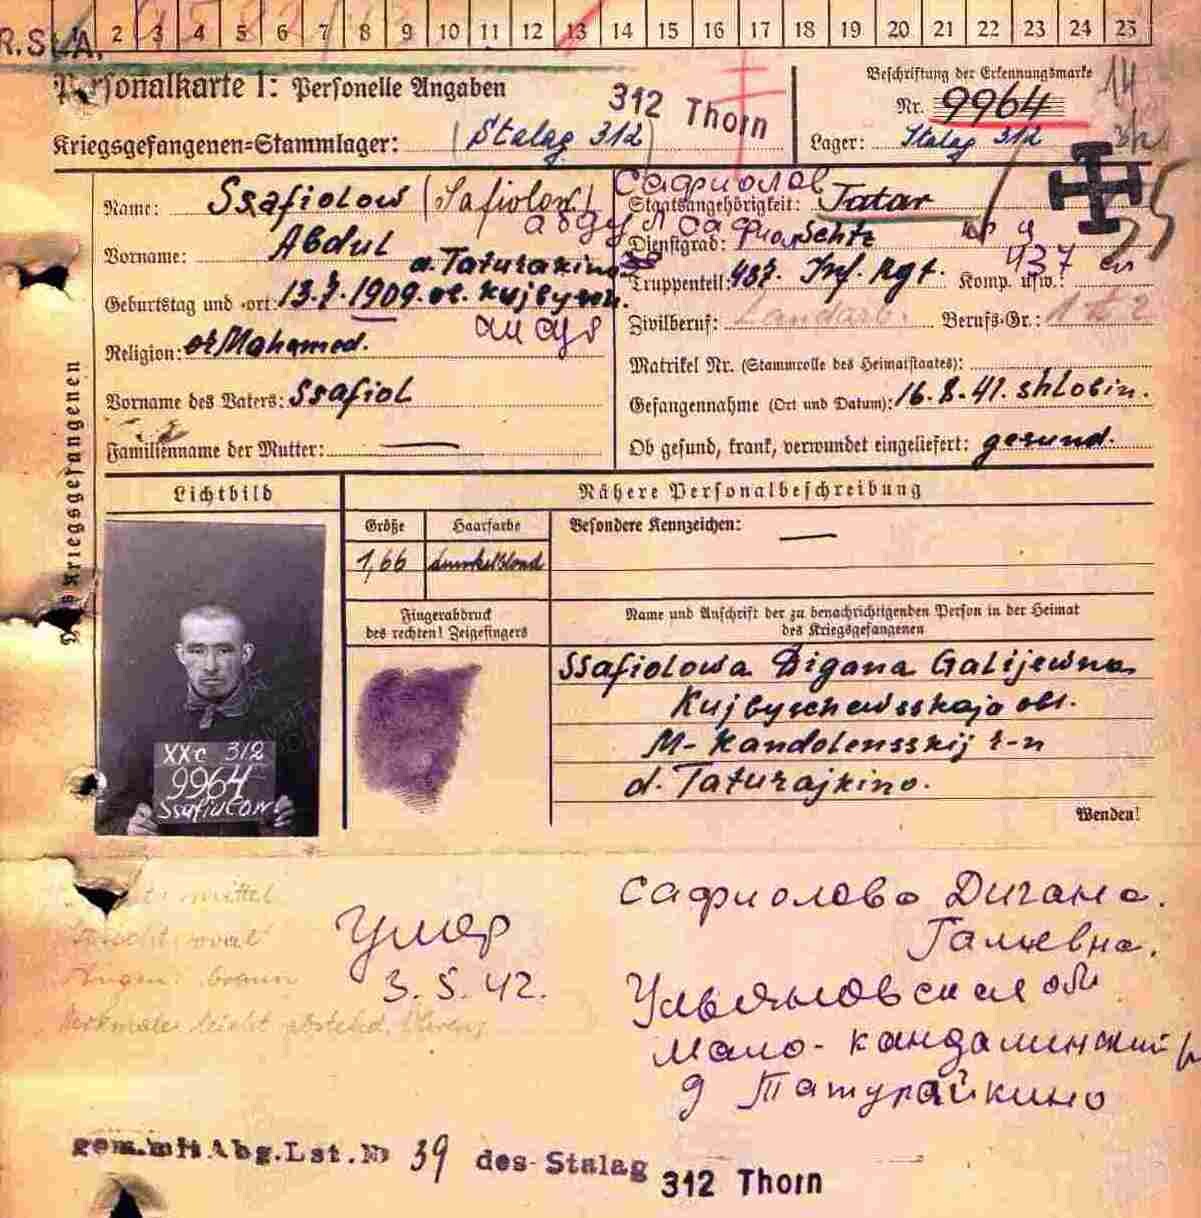 2 3 4 5 6 7 8 9 10 11 12 13 14 15 16 17 18 19 20 21 22 23 24 25
Personalkarte I: Personelle Angaben
312 Thorn
Beschriftung der Erkennungsmarke
Nr. 9964
Kriegsgefangenen=Stammlager: (Stalag 312)
Lager: Stalag 312
Name: Ssafiolow (Safiolow)
Сафиолов
Staatsangehörigkeit: Tatar
Абдул Сафиол
Vorname: Abdul
Dienstgrad: Schtz
d. Taturakino
Geburtstag und =ort: 13.7.1909. Kujbysch.
Truppenteil: 437. Inf. Rgt. Komp. usw.: 437
Zivilberuf: Landarb. Berufs=Gr.:
Religion: Mahamed.
Matrikel Nr. (Stammrolle des Heimatstaates):
Vorname des Vaters: Ssafiol
Gefangennahme (Ort und Datum): 16.8.41. Shlobin.
Familienname der Mutter: —
Ob gesund, krank, verwundet eingeliefert: gesund.
Des Kriegsgefangenen
Lichtbild
Nähere Personalbeschreibung
Größe
Haarfarbe
Besondere Kennzeichen: —
1,66
dunkelblond
Fingerabdruck
des rechten! Zeigefingers
Name und Anschrift der zu benachrichtigenden Person in der Heimat
des Kriegsgefangenen
Ssafiolowa Digana Galijewna
Kujbyschewsskaja obl.
M-Kandolensskij r-n
d. Taturajkino.
Wenden!
XXc 312
9964
Ssafiulow
mittel
oval
Augen: braun
Merkmale: leicht abstehd. Ohren
умер
3.5.42.
Сафиолова Дигана.
Галиевна.
Ульяновская обл
Мало-кандалинский р
д Татурайкино
gem.mit Abg.Lst.No 39 des Stalag 312 Thorn